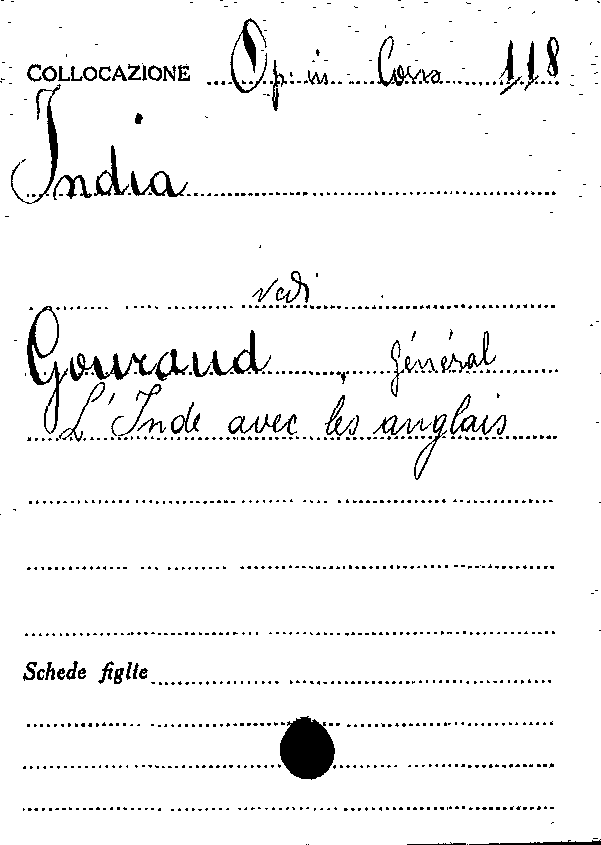 COLLOCAZIONE Op. in Corso 118
India
vedi
Gouraud, Général
L'Inde avec les anglais
Schede figlie